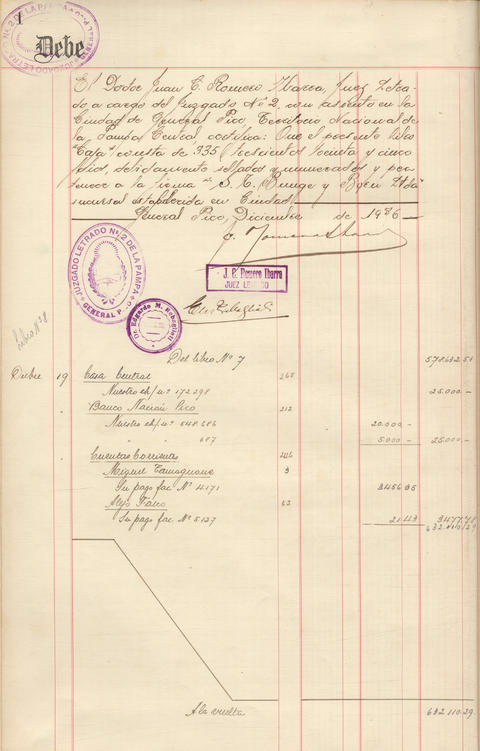 1
JUZGADO LETRADO Nº 2 DE LA PAMPA
Debe
El Doctor Juan C. Romero Ibarra, Juez Letra-
do a cargo del Juzgado Nº 2, con asiento en la
Ciudad de General Pico, Territorio Nacional de
la Pampa Central, certifica: Que el presente libro
"Caja", consta de 335 (trescientos treinta y cinco
folios, debidamente sellados y numerados y per-
tenece a la firma "S. A. Bunge y Born Ltda"
sucursal establecida en Ciudad
General Pico, Diciembre de 1936
JUZGADO LETRADO Nº 2 DE LA PAMPA
GENERAL PICO
J. C. Romero Ibarra
JUEZ LETRADO
Dr. Edgardo M. Rebagliati
Libro Nº 8
Del libro Nº 7 578.632.51
Dicbre 19 Casa Central 265
Nuestro ch/ nº 172.298 25.000.-
Banco Nación Pico 212
Nuestro ch/ nº 548.686 20.000.-
" " 687 5.000.- 25.000.-
Cuentas Corrientes 246
Miguel Tamagnone 3
Su pago fac Nº 4171 3456.35
Alejo 62
Su pago fac Nº 5127 21.43 3477.78
632.110.29
A la vuelta 632.110.29